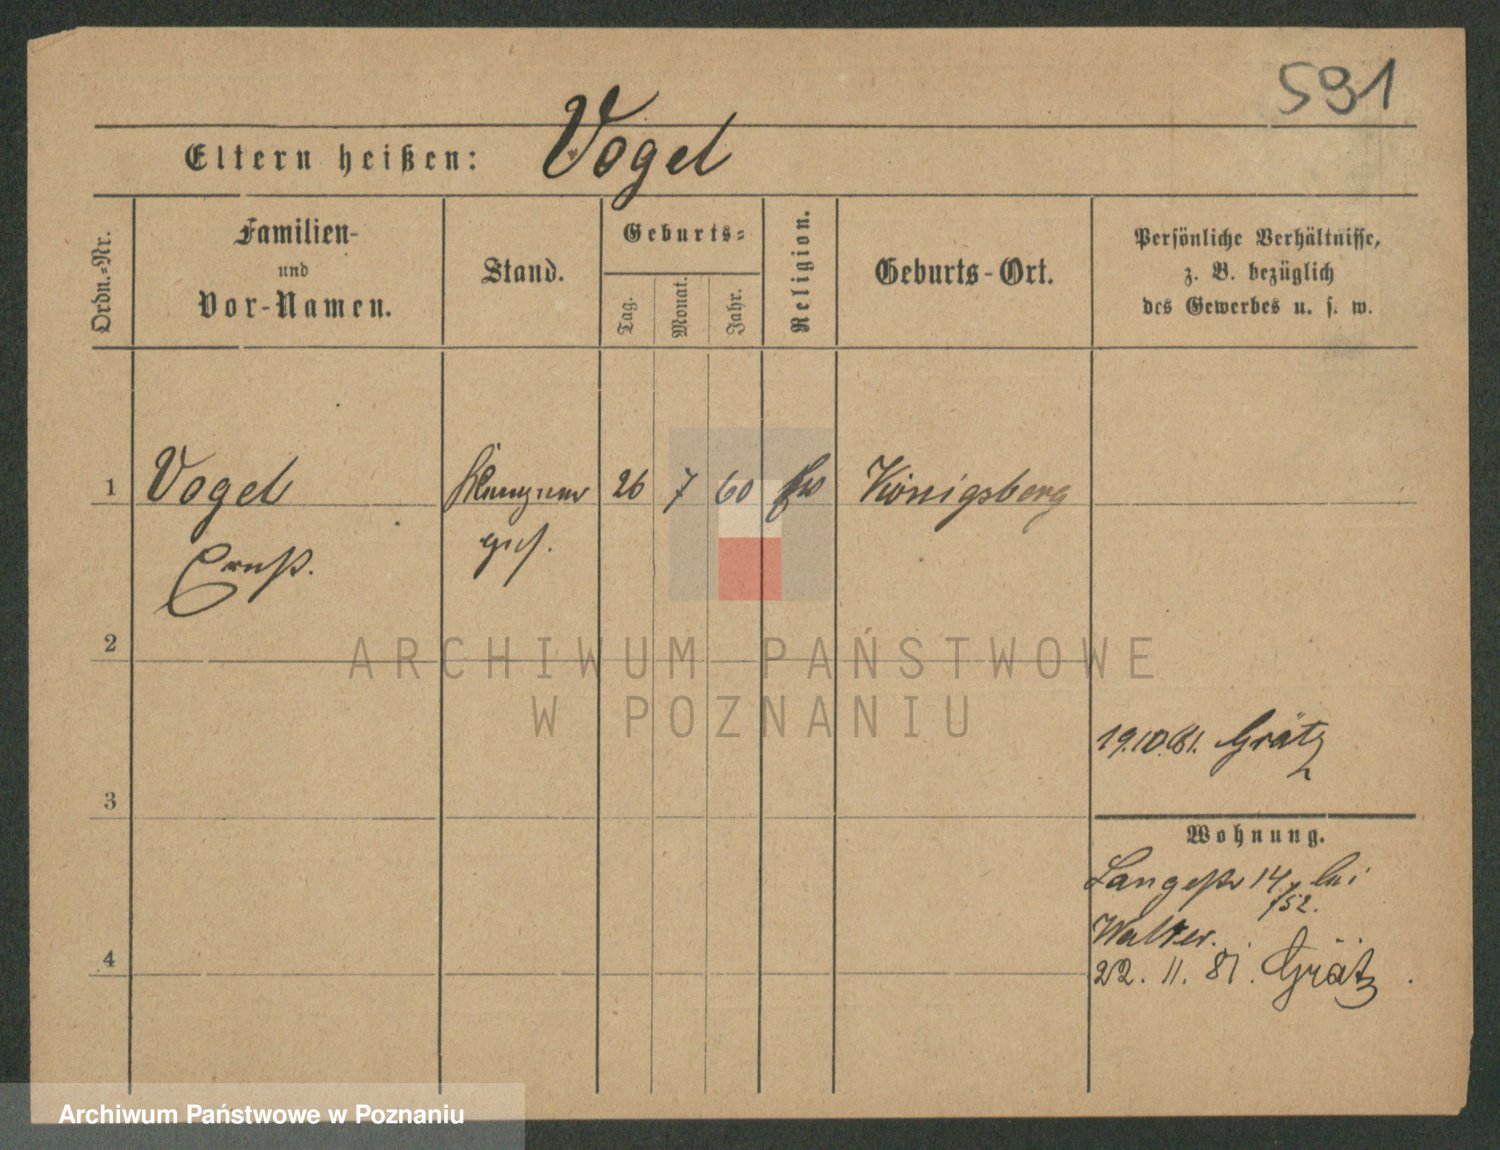 591
Eltern heißen: Vogel
Ordn.-Nr.
Familien-
und
Vor-Namen.
Stand.
Geburts-
Tag.
Monat.
Jahr.
Religion.
Geburts-Ort.
Persönliche Verhältnisse,
z. B. bezüglich
des Gewerbes u. s. w.
1 Vogel 26 7 60 Königsberg
Ernst.
2
ARCHIWUM PAŃSTWOWE
W POZNANIU
19.10.81. Grätz
3
Wohnung.
Langestr 14/52. bei
Walter.
4
22. 11. 81. Grätz.
Archiwum Państwowe w Poznaniu